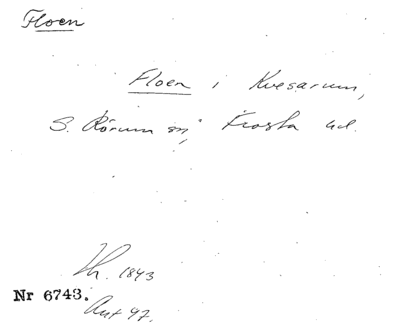 Floen
Floen i Kvesarum,
S. Rörum sn, Frosta hd.
Th. 1843
Nr 6743.
Ant 47.